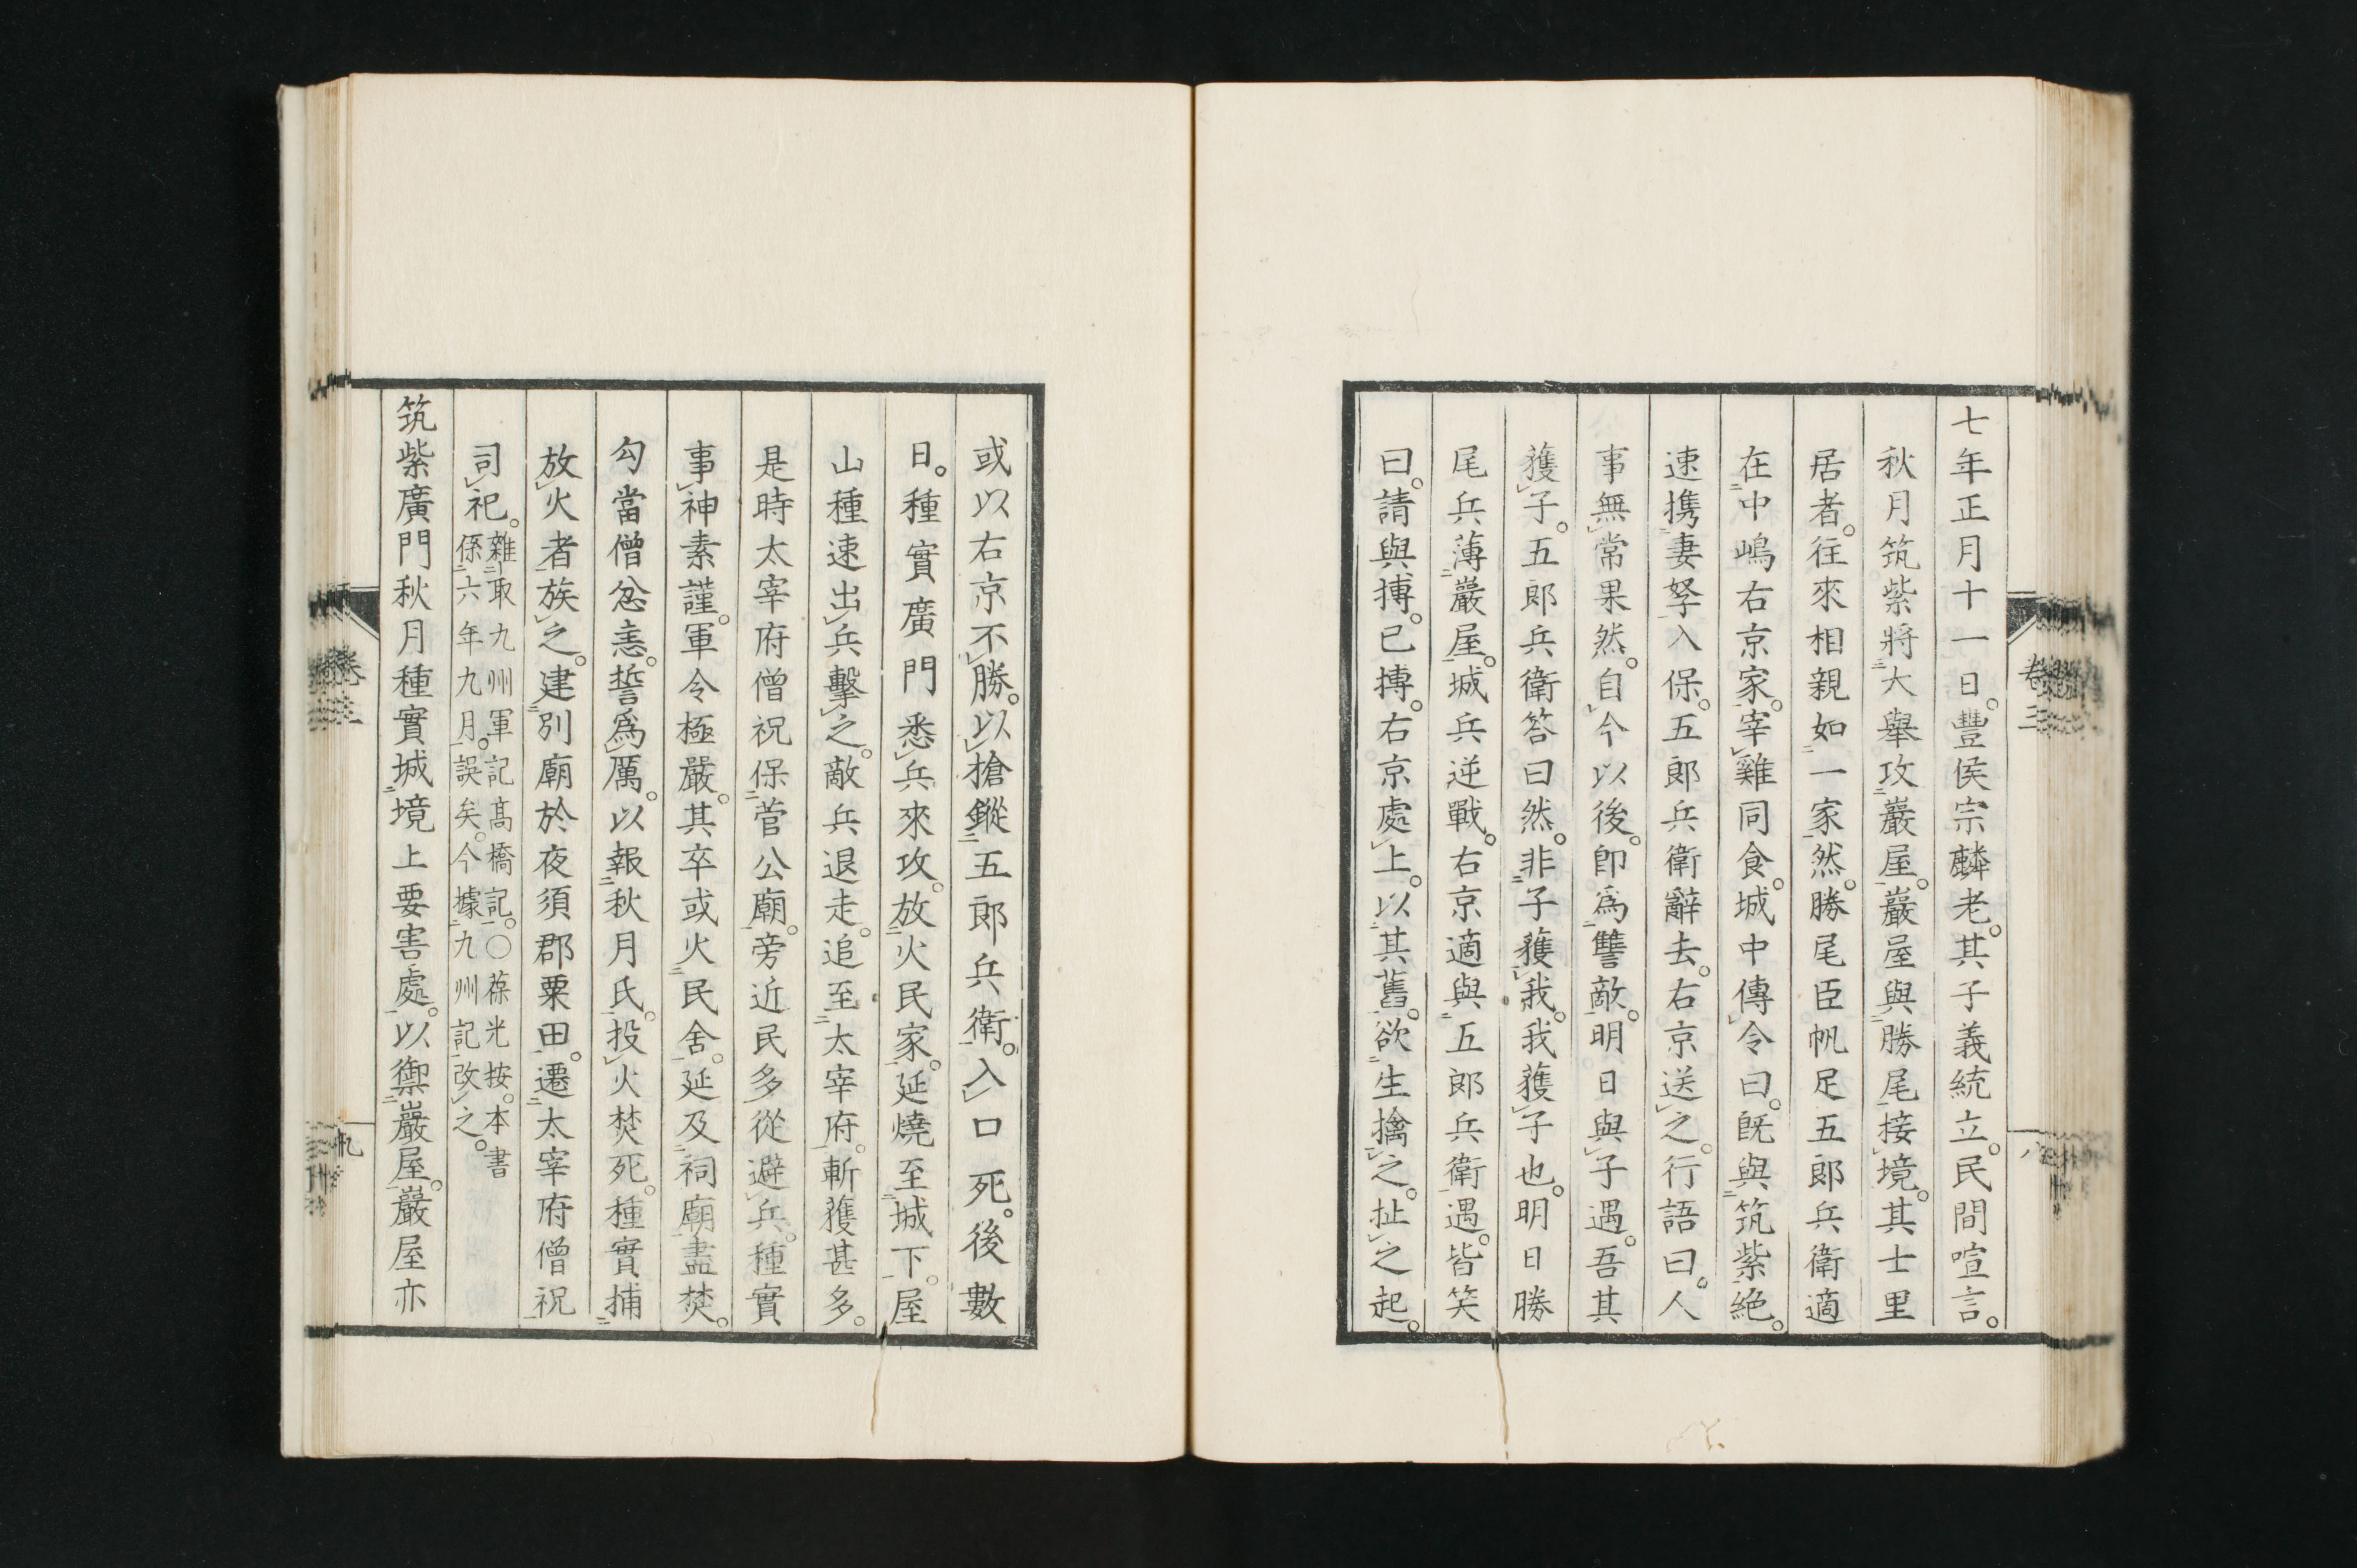 七年正月十一日。豐侯宗麟老。其子義統立。民間喧言。
秋月筑紫將大舉攻巖屋。巖屋與勝尾接境。其士里
居者。往來相親如一家然。勝尾臣帆足五郎兵衛適
在中嶋右京家。宰雞同食。城中傳令曰。既與筑紫絶。
速携妻孥入保。五郎兵衛辭去。右京送之。行語曰。人
事無常果然。自今以後。卽爲讐敵。明日與子遇。吾其
獲子。五郎兵衛答曰然。非子獲我。我獲子也。明日勝
尾兵薄巖屋。城兵逆戰。右京適與五郎兵衛遇。皆笑
曰。請與搏。已搏。右京處上。以其舊。欲生擒之。扯之起。
或以右京不勝。以搶鏦五郎兵衛。入口死。後數
日。種實廣門悉兵來攻。放火民家。延燒至城下。屋
山種速出兵擊之。敵兵退走。追至太宰府。斬獲甚多。
是時太宰府僧祝保菅公廟。旁近民多從避兵。種實
事神素謹。軍令極嚴。其卒或火民舍。延及祠廟盡焚。
勾當僧忿恚。誓爲厲。以報秋月氏。投火焚死。種實捕
放火者族之。建別廟於夜須郡粟田。遷太宰府僧祝
司祀。雜取九州軍記髙橋記。〇葆光按。本書
係六年九月。誤矣。今據九州記改之。
筑紫廣門秋月種實城境上要害處。以禦巖屋。巖屋亦
卷三
八
卷三
九